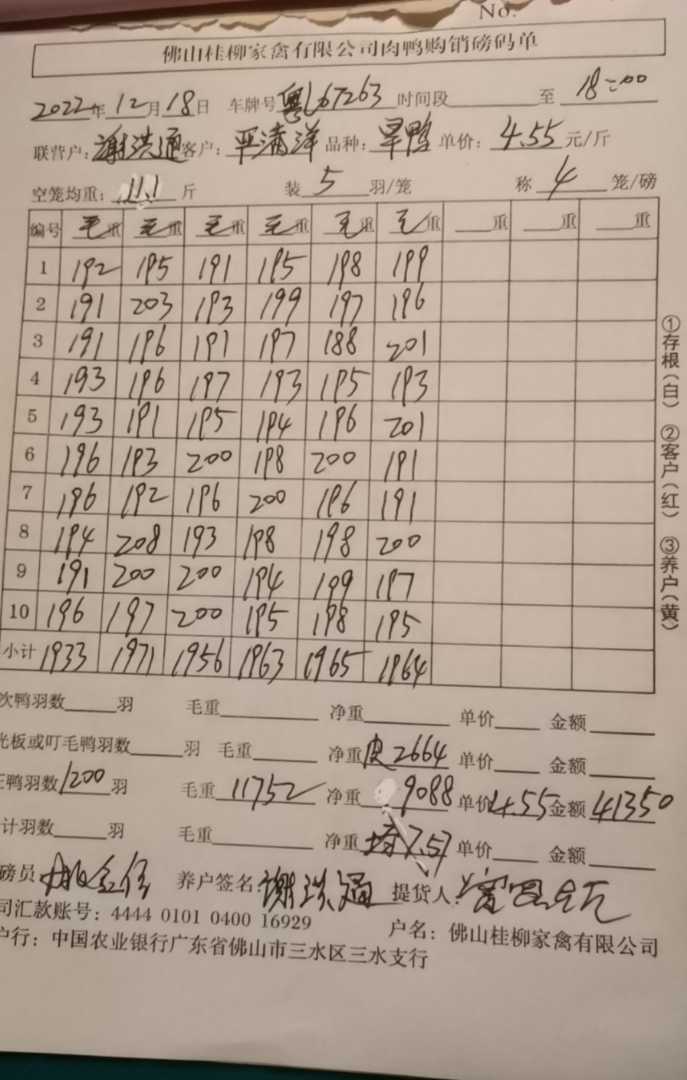 No.
佛山桂柳家禽有限公司肉鸭购销磅码单
2022年12月18日 车牌号 粤L67263 时间段 至 18:00
联营户: 谢洪通 客户: 严满洋 品种: 旱鸭 单价: 4.55 元/斤
空笼均重: 11.1 斤 装 5 羽/笼 称 4 笼/磅
编号 毛重 毛重 毛重 毛重 毛重 毛重 重 重 重
1 192 195 191 195 198 199
2 191 203 193 199 197 196
3 191 196 191 197 188 201
4 193 196 197 193 195 193
5 193 191 195 194 196 201
6 196 193 200 198 200 191
7 196 192 196 200 196 191
8 194 208 193 198 198 200
9 191 200 200 194 199 197
10 196 197 200 195 198 195
小计 1933 1971 1956 1963 1965 1964
次鸭羽数 羽 毛重 净重 单价 金额
光板或叮毛鸭羽数 羽 毛重 净重 皮2664 单价 金额
正鸭羽数 1200 羽 毛重 11752 净重 9088 单价 4.55 金额 41350
计羽数 羽 毛重 净重 均7.57 单价 金额
磅员 养户签名: 谢洪通 提货人:
司汇款账号: 4444 0101 0400 16929 户名: 佛山桂柳家禽有限公司
户行: 中国农业银行广东省佛山市三水区三水支行
①存根(白) ②客户(红) ③养户(黄)